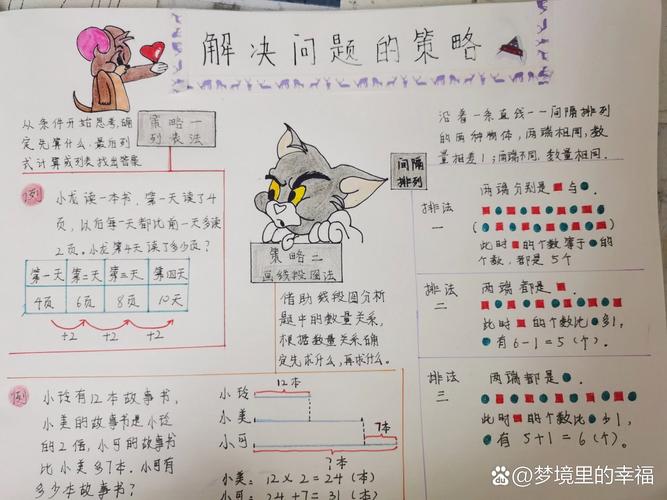 解决问题的策略
从条件开始思考,确
定先算什么,最后列
式计算或列表找出答案
策略一
列表法
例
小龙读一本书,第一天读了4
页,以后每一天都比前一天多读
2页。小龙第4天读了多少页?
第一天 第二天 第三天 第四天
4页 6页 8页 10天
+2 +2 +2
策略二
画线段图法
借助线段图分析
题中的数量关系,
根据数量关系确
定先求什么,再求什么。
例
小玲有12本故事书,
小美的故事书是小玲
的2倍,小可的故事书
比小美多7本。小可有
多少本故事书?
12本
小玲
小美
小可
7本
?本
小美:12×2=24(本)
小可:24+7=31(本)
间隔
排列
沿着一条直线一一间隔排列
的两种物体,两端相同,数
量相差1;两端不同,数量相同。
排法
一
两端分别是 与 。
此时 的个数等于 的
个数,都是5个
排法
二
两端都是 。
此时 的个数比 多1,
有6-1=5(个)。
排法
三
两端都是 。
此时 的个数比 少1,
有5+1=6(个)。
Bai 知道 @梦境里的幸福